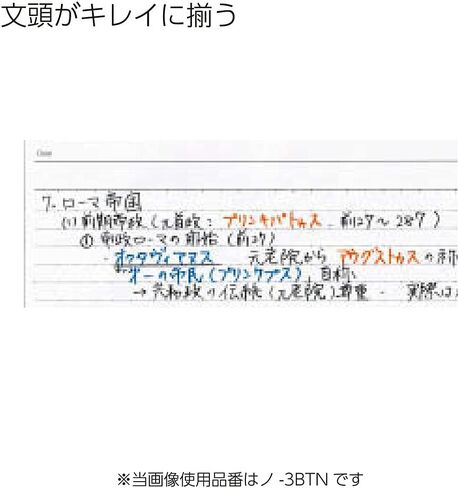 文頭がキレイに揃う
7. ローマ帝国
(1) 前期帝政 (元首政: プリンキパトゥス 前27〜284)
① 帝政ローマの開始 (前27)
・オクタヴィアヌス 元老院から アウグストゥスの称
第一の市民 (プリンケプス), 自称
→ 共和政の伝統 (元老院) 尊重 - 実際は
※当画像使用品番はノ-3BTNです